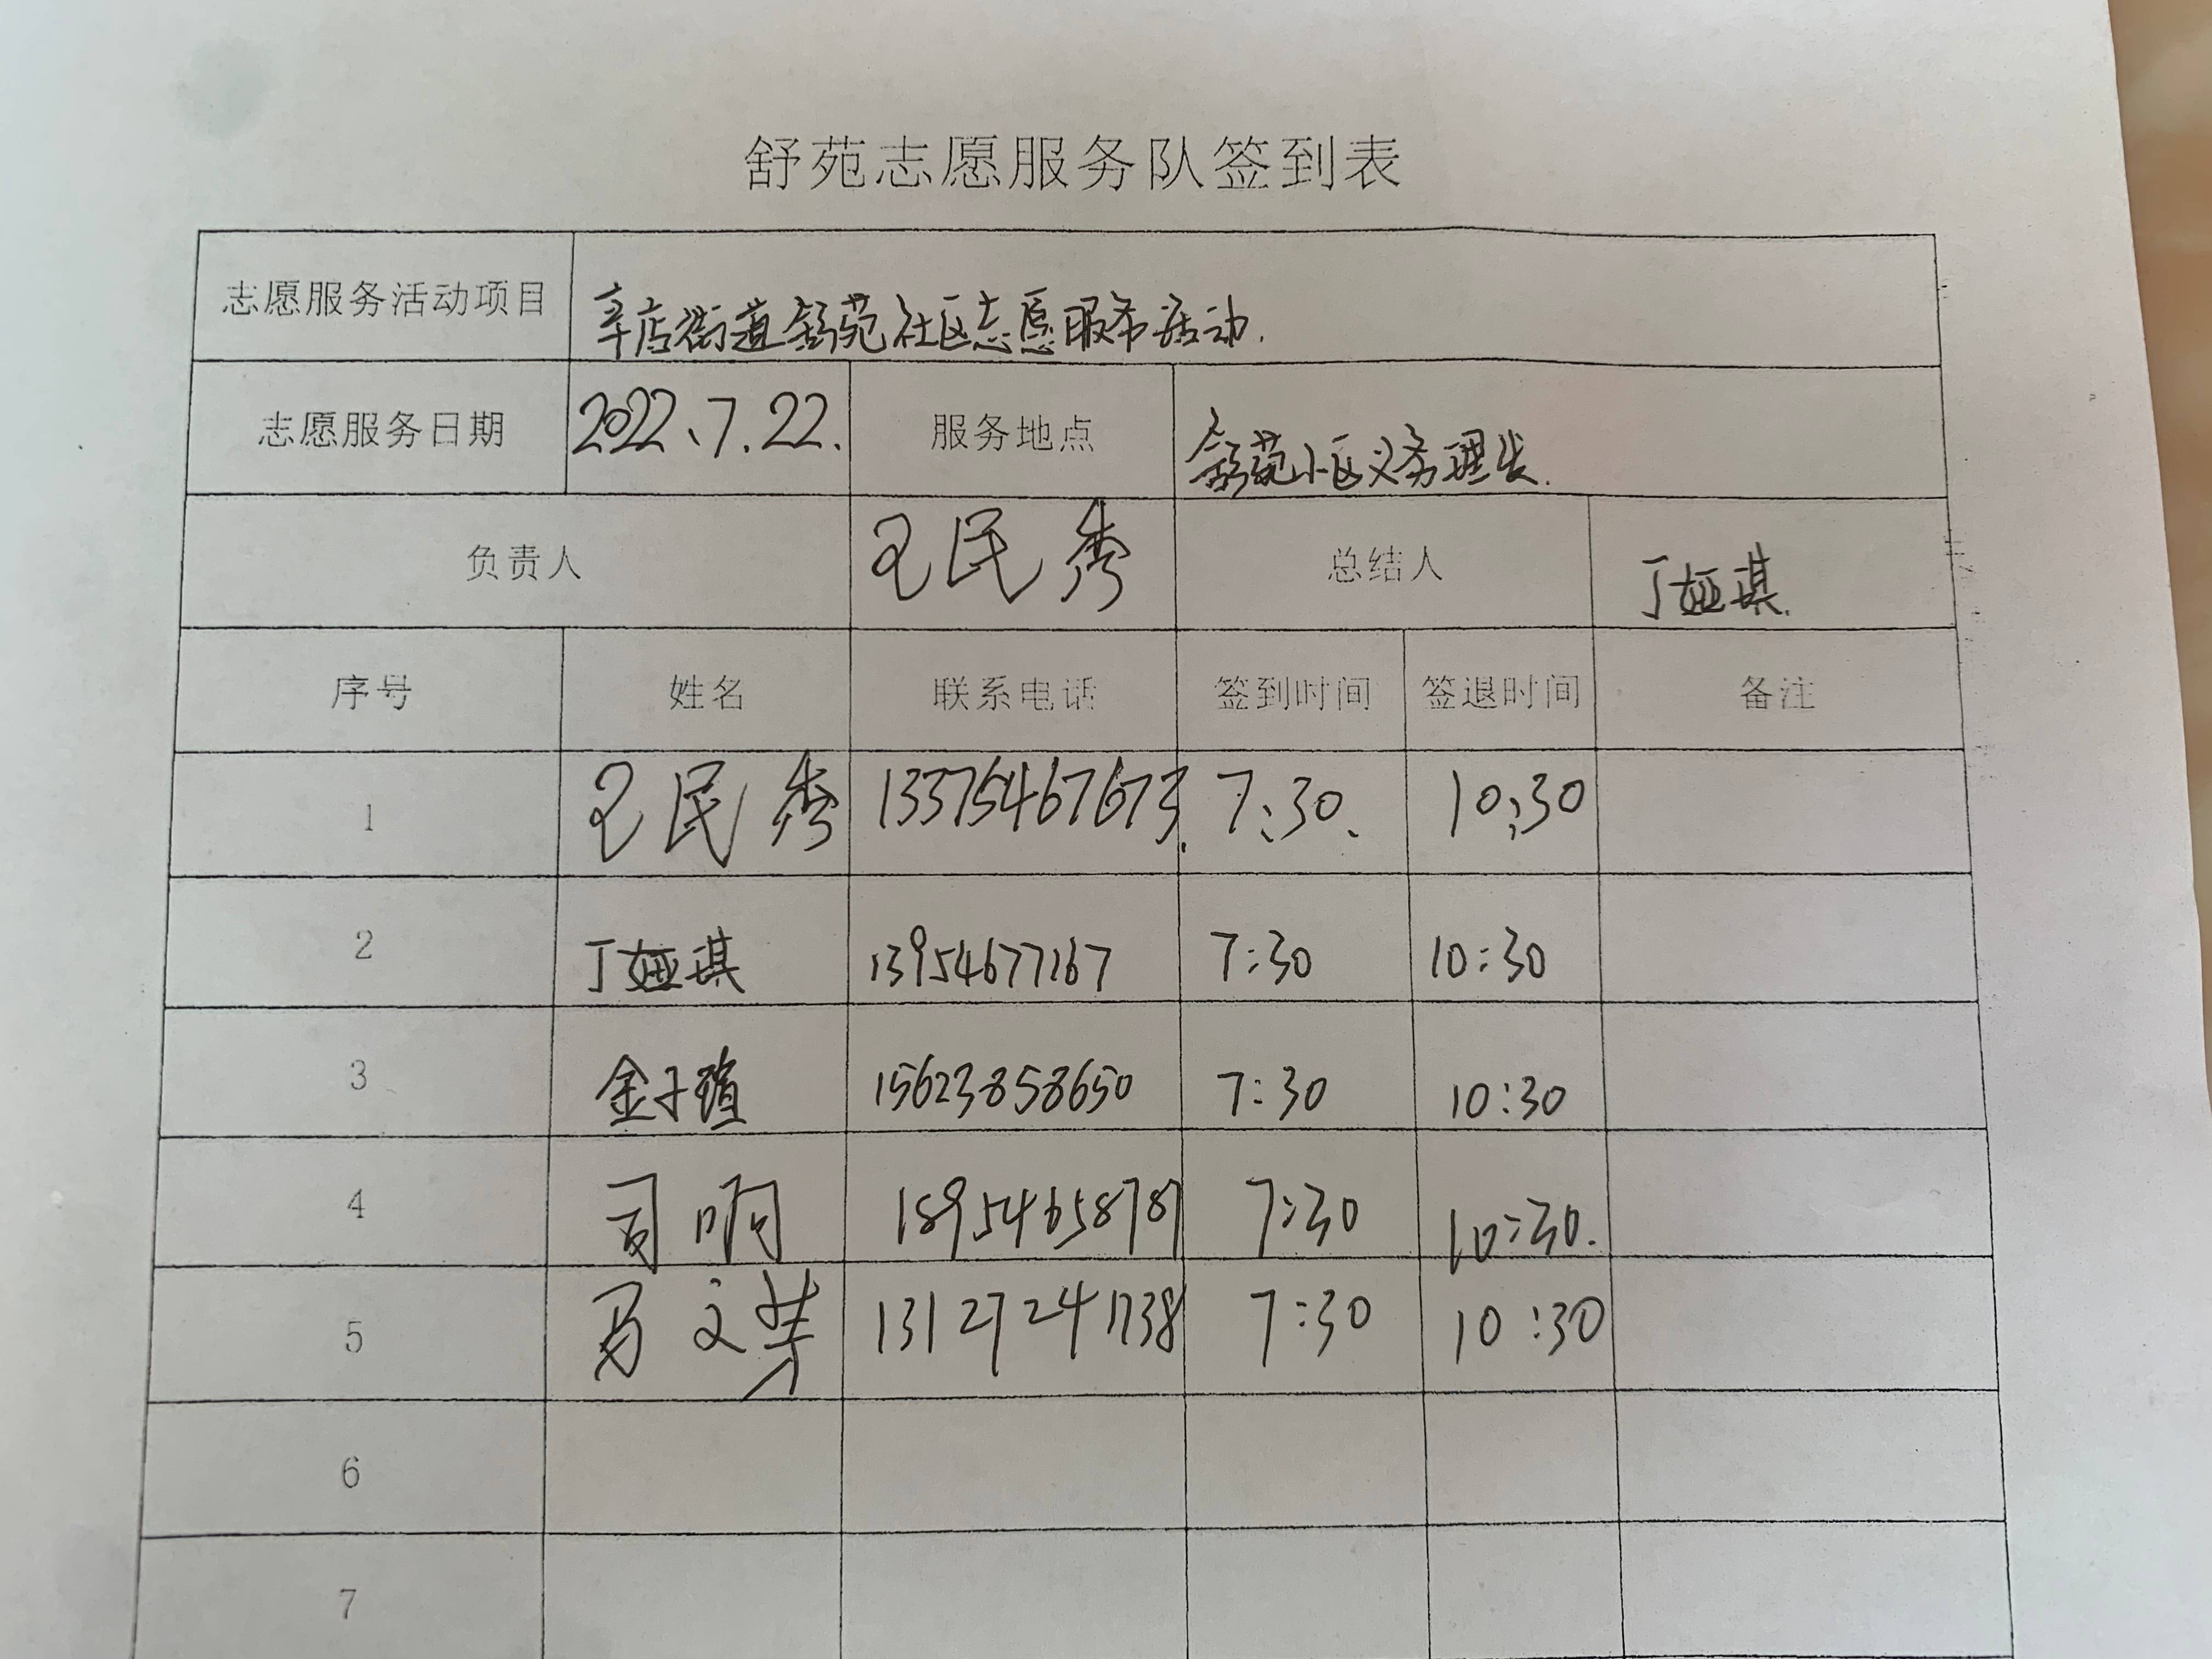 舒苑志愿服务队签到表
志愿服务活动项目 辛店街道舒苑社区志愿服务活动.
志愿服务日期 2022、7.22. 服务地点 舒苑小区义务理发.
负责人 王民秀 总结人 丁娅琪.
序号 姓名 联系电话 签到时间 签退时间 备注
1 王民秀 13375467673. 7:30、 10:30
2 丁娅琪 13954677167 7:30 10:30
3 金子瑄 15623858650 7:30 10:30
4 司响 18954658787 7:30 10:30.
5 马文 13127241738 7:30 10:30
6
7